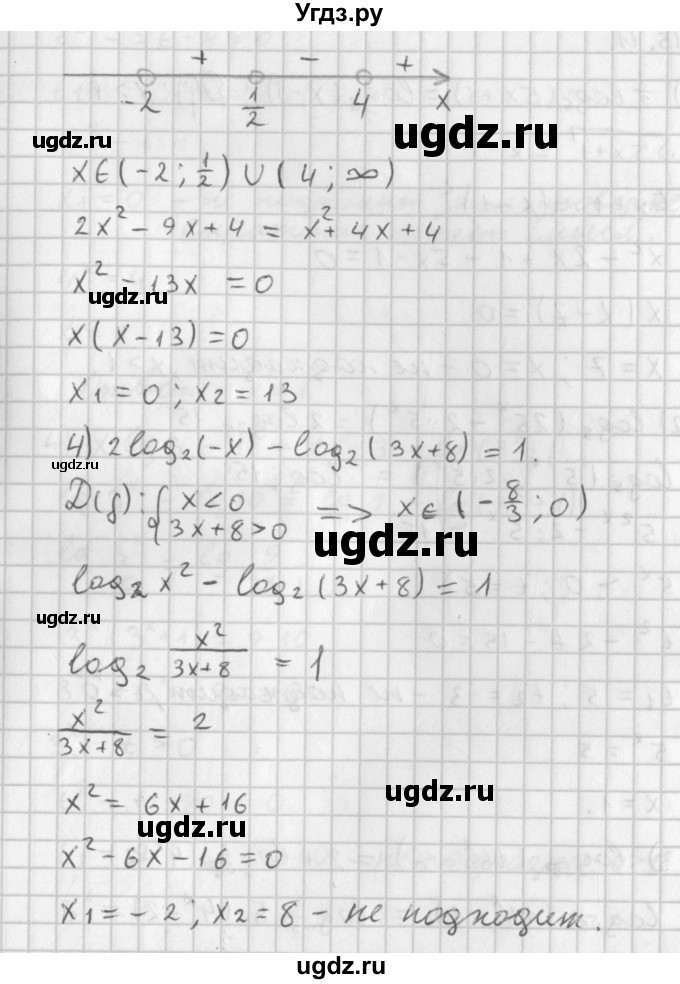 Угдз.ру
+ - +
-2 1/2 4 x
ugdz.ru
x∈(-2; 1/2) ∪ (4; ∞)
ugdz.ru
2x² - 9x + 4 = x² + 4x + 4
x² - 13x = 0
ugdz.ru
x(x-13) = 0
x₁ = 0; x₂ = 13
4) 2log₂(-x) - log₂(3x+8) = 1.
ugdz.ru
D(f): { x<0 3x+8>0 => x∈(-8/3; 0)
ugdz.ru
log₂x² - log₂(3x+8) = 1
ugdz.ru
log₂ x²/(3x+8) = 1
x²/(3x+8) = 2
x² = 6x+16
ugdz.ru
ugdz.ru
x² - 6x - 16 = 0
x₁ = -2; x₂ = 8 - не подходит.
ugdz.ru